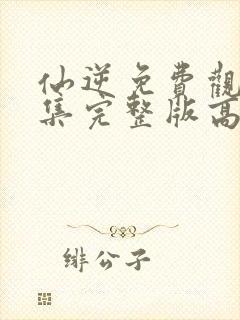 仙逆免費觀
集完整版高
緋公子